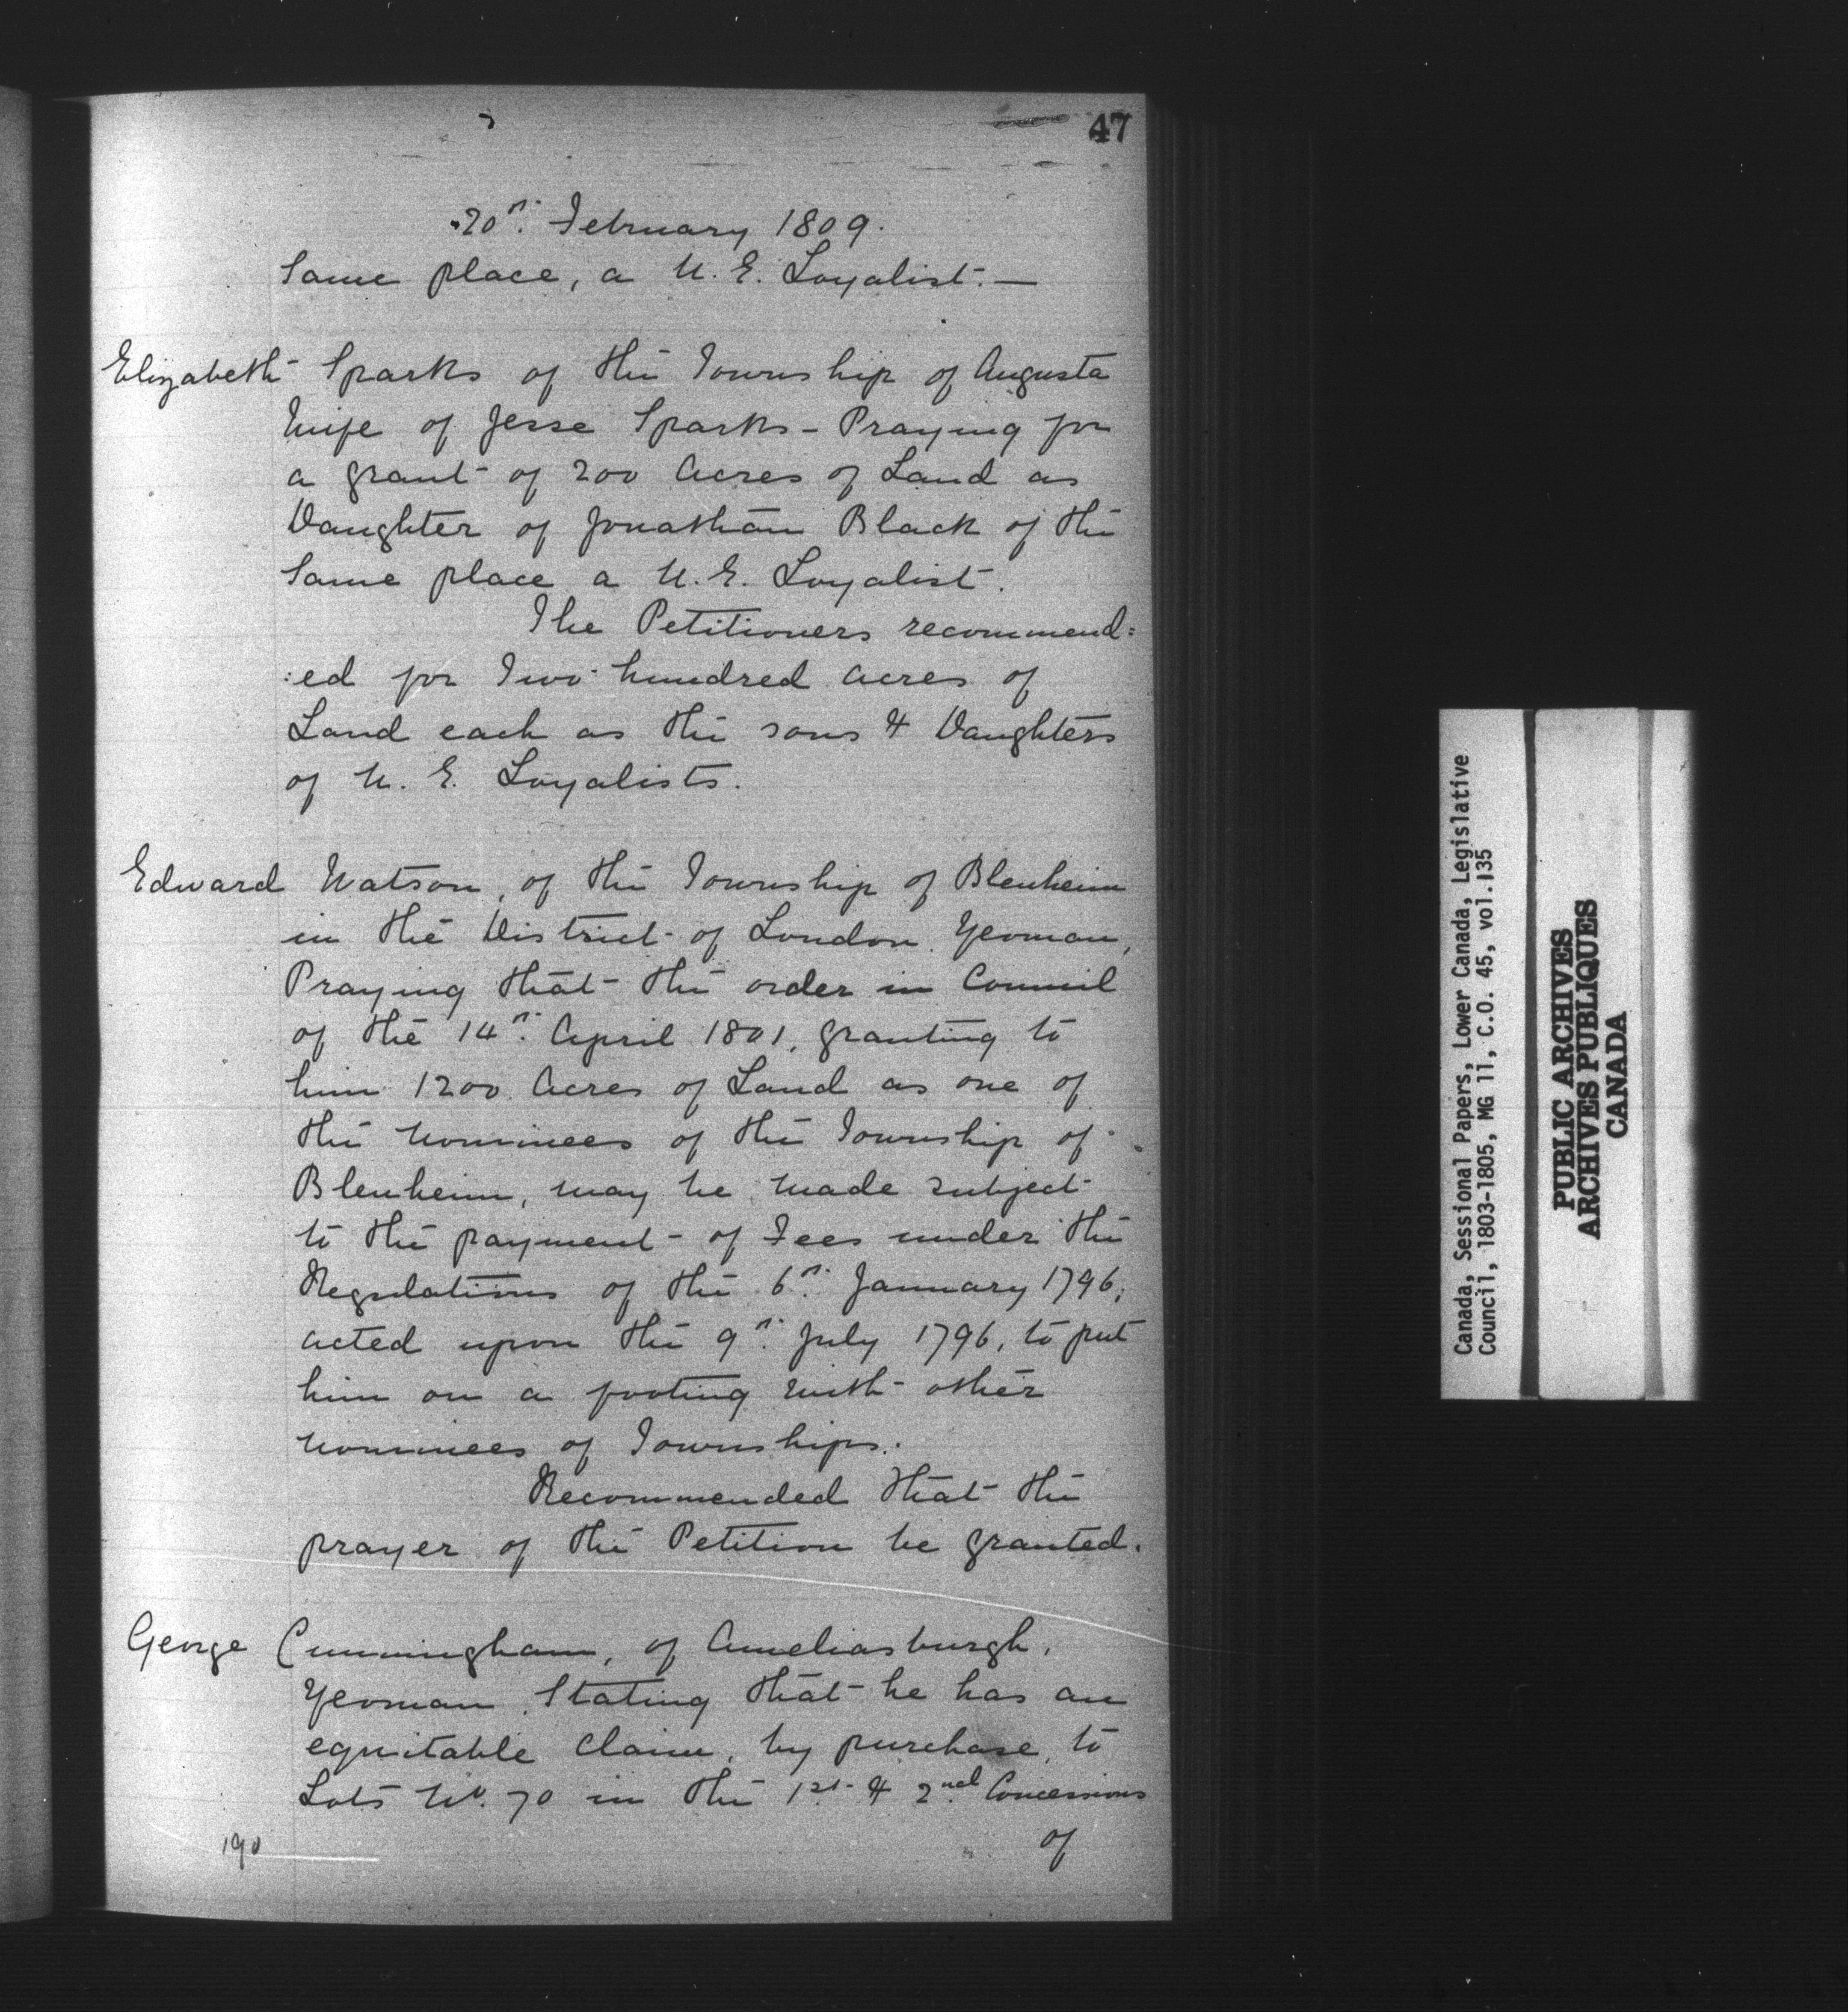 47
20th. February 1809.
Same place, a U. E. Loyalist. —
Elizabeth Sparks of the Township of Augusta
Wife of Jesse Sparks - Praying for
a grant of 200 Acres of Land as
Daughter of Jonathan Black of the
Same place a U. E. Loyalist.
The Petitioners recommend:
:ed for Two hundred Acres of
Land each as the sons & Daughters
of U. E. Loyalists.
Edward Watson, of the Township of Blenheim
in the District of London. Yeoman,
Praying that the order in Council
of the 14th. April 1801, granting to
him 1200 Acres of Land as one of
the Nominees of the Township of
Blenheim, may be made subject
to the payment of Fees under the
Regulations of the 6th. January 1796;
acted upon the 9th. July 1796, to put
him on a footing with other
Nominees of Townships.
Recommended that the
prayer of the Petition be granted.
George Cunningham, of Ameliasburgh,
Yeoman, Stating that he has an
equitable Claim, by purchase, to
Lots No. 70 in the 1st. & 2nd. Concessions
190
of
Canada, Sessional Papers, Lower Canada, Legislative
Council, 1803-1805, MG 11, C.O. 45, vol.135
PUBLIC ARCHIVES
ARCHIVES PUBLIQUES
CANADA